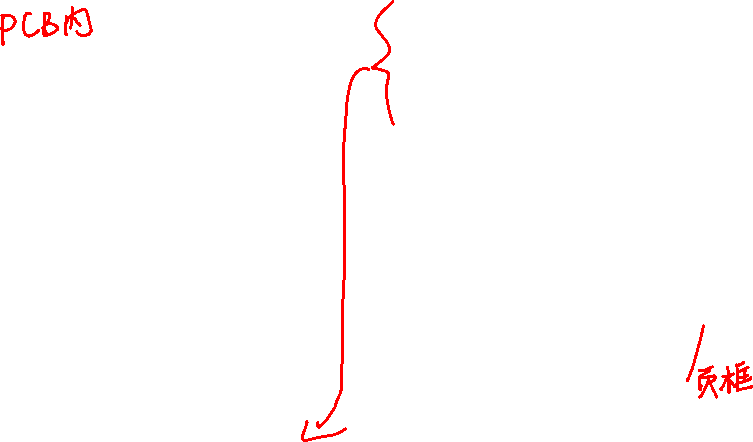 PCB内
/页框